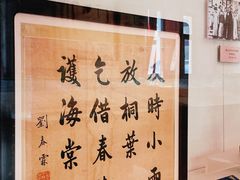 及時小雨
放桐葉
乞借春
護海棠
劉春霖